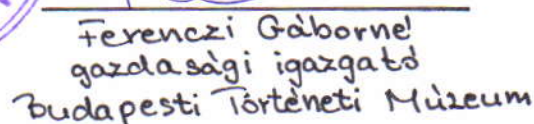 Ferenczi Gáborné
gazdasági igazgató
Budapesti Történeti Múzeum